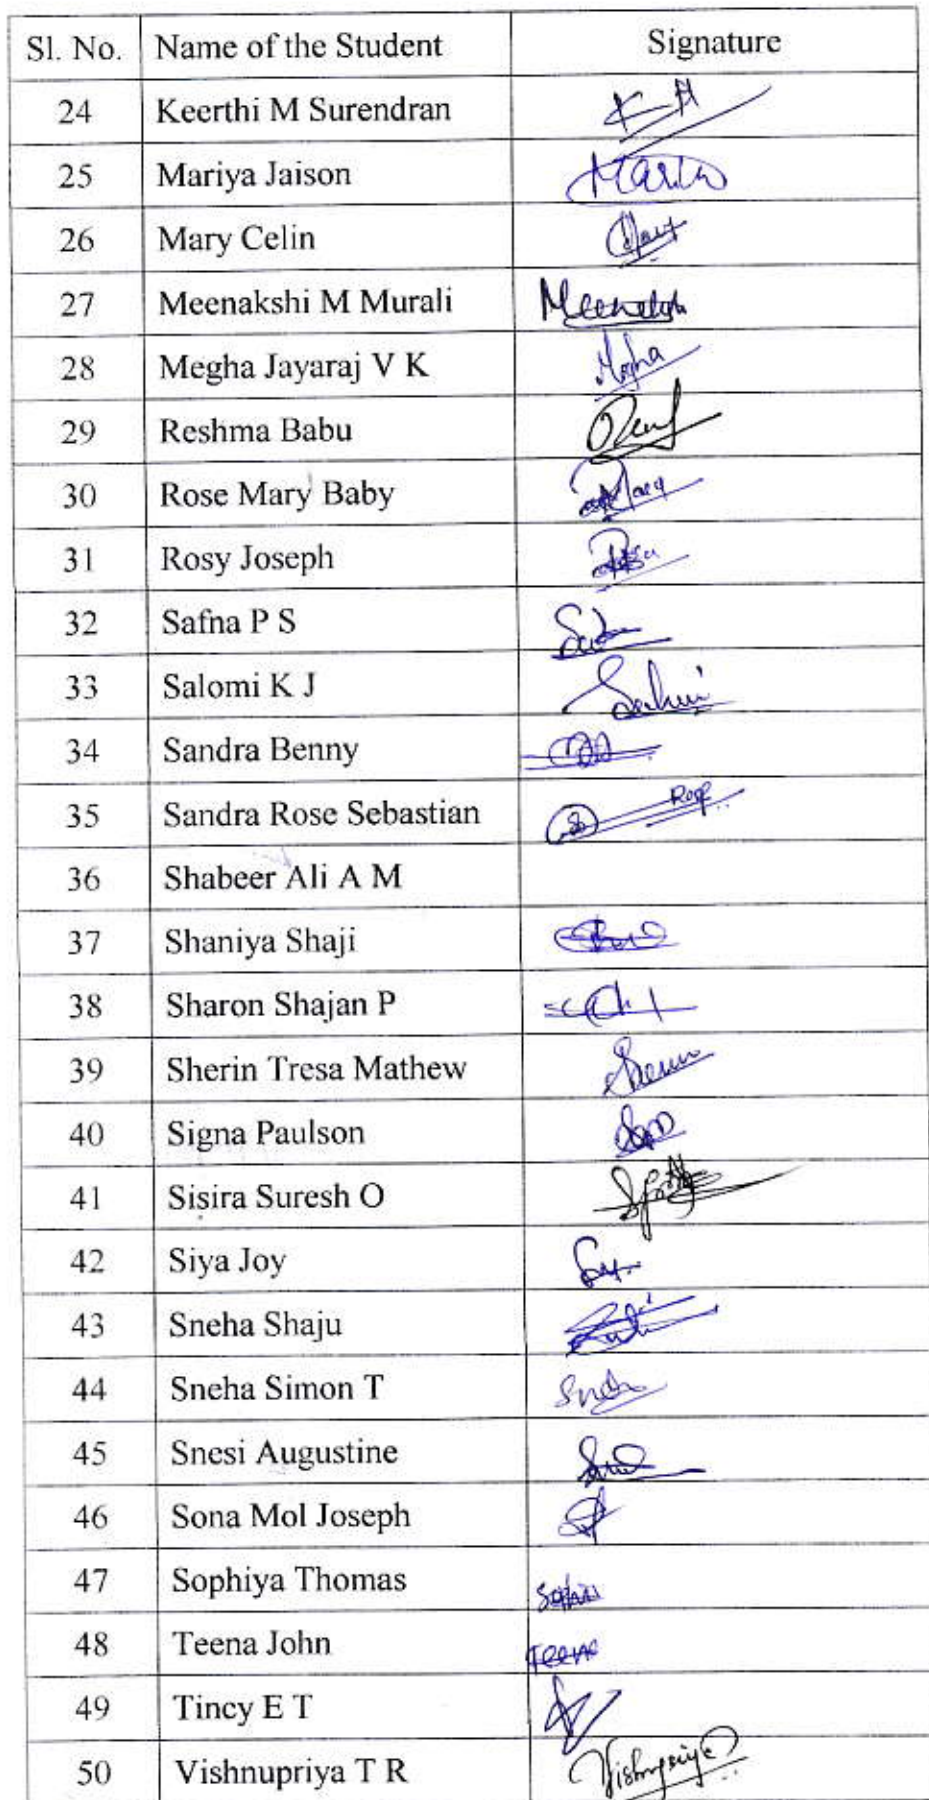 Sl. No. Name of the Student Signature
24 Keerthi M Surendran K M
25 Mariya Jaison Maria
26 Mary Celin Mary
27 Meenakshi M Murali
28 Megha Jayaraj V K Megha
29 Reshma Babu
30 Rose Mary Baby
31 Rosy Joseph
32 Safna P S
33 Salomi K J
34 Sandra Benny
35 Sandra Rose Sebastian
36 Shabeer Ali A M
37 Shaniya Shaji
38 Sharon Shajan P
39 Sherin Tresa Mathew
40 Signa Paulson
41 Sisira Suresh O
42 Siya Joy
43 Sneha Shaju
44 Sneha Simon T
45 Snesi Augustine
46 Sona Mol Joseph
47 Sophiya Thomas
48 Teena John Teena
49 Tincy E T
50 Vishnupriya T R Vishnupriya